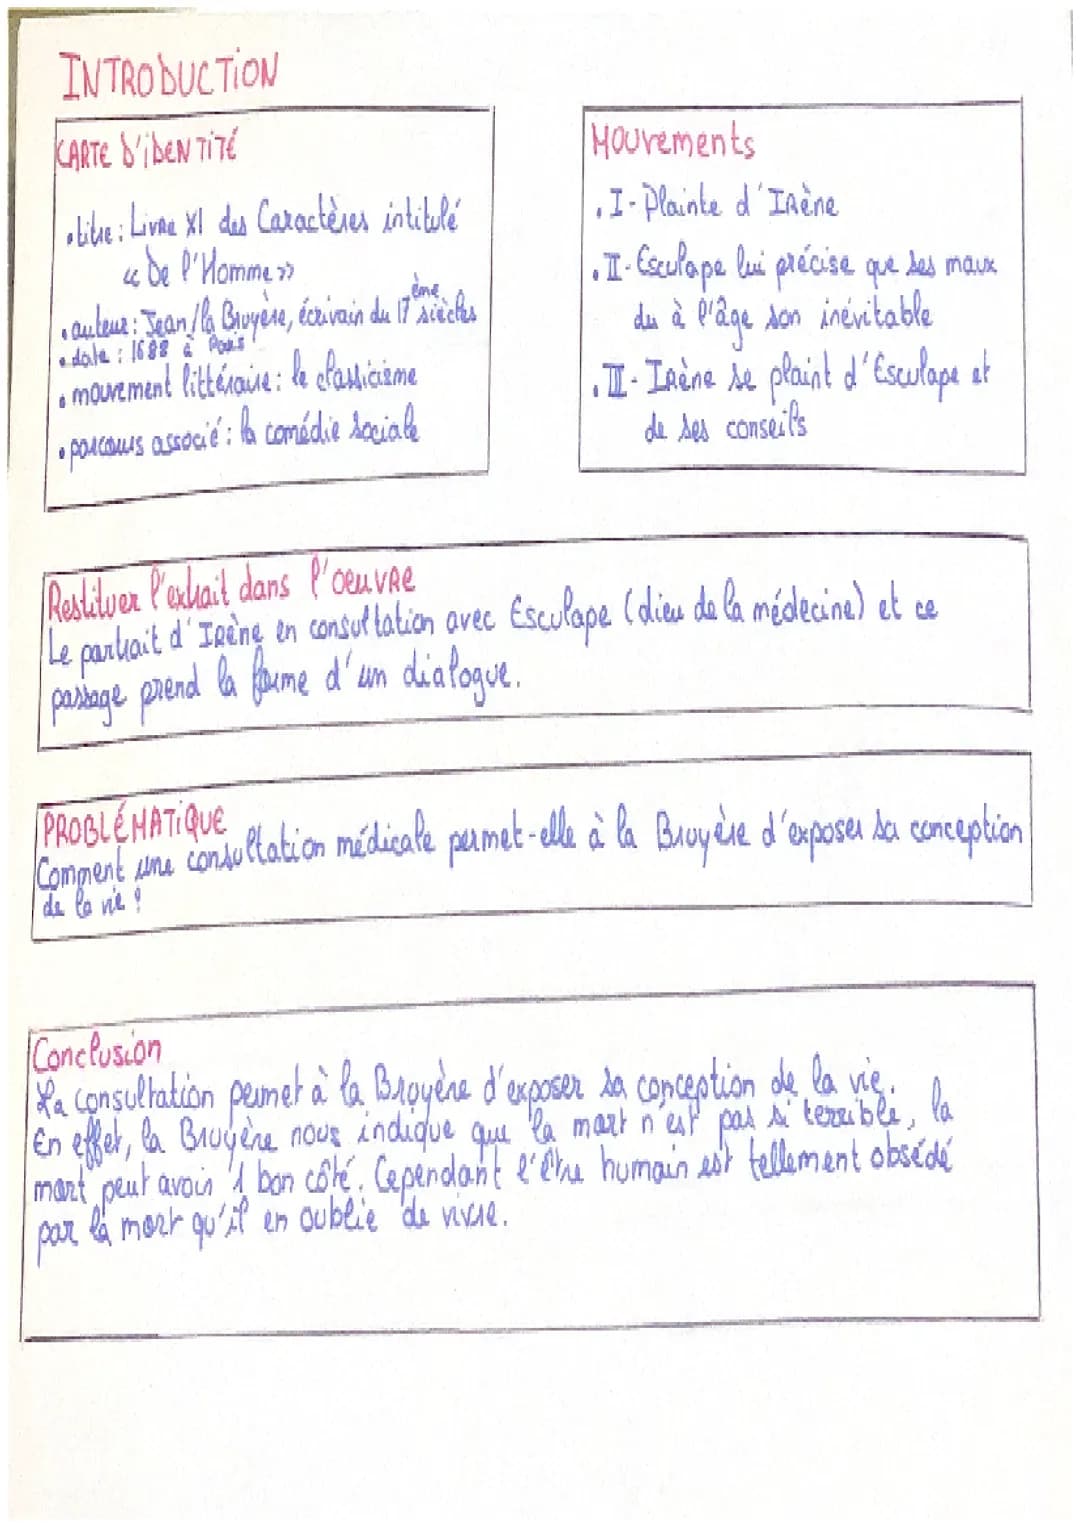 INTRODUCTION
CARTE D'iDENTITÉ
• titre : Livre XI des Caractères intitulé
« De l'Homme »
• auteur : Jean/la Bruyère, écrivain du 17ème siècles
• date : 1688 à Paris
• mouvement littéraire : le classicisme
• parcours associé : la comédie sociale
Mouvements
. I - Plainte d'Irène
. II - Esculape lui précise que ses maux
du à l'âge son inévitable
. III - Irène se plaint d'Esculape et
de ses conseils
Restituer l'extrait dans l'oeuvre
Le partrait d'Irène en consultation avec Esculape (dieu de la médecine) et ce
passage prend la forme d'un dialogue.
PROBLÉMATiQUE
Comment une consultation médicale permet-elle à la Bruyère d'exposer sa conception
de la vie ?
Conclusion
La consultation permet à la Bruyère d'exposer sa conception de la vie.
En effet, la Bruyère nous indique que la mort n'est pas si terrible, la
mort peut avoir 1 bon côté. Cependant l'être humain est tellement obsédé
par la mort qu'il en oublie de vivre.